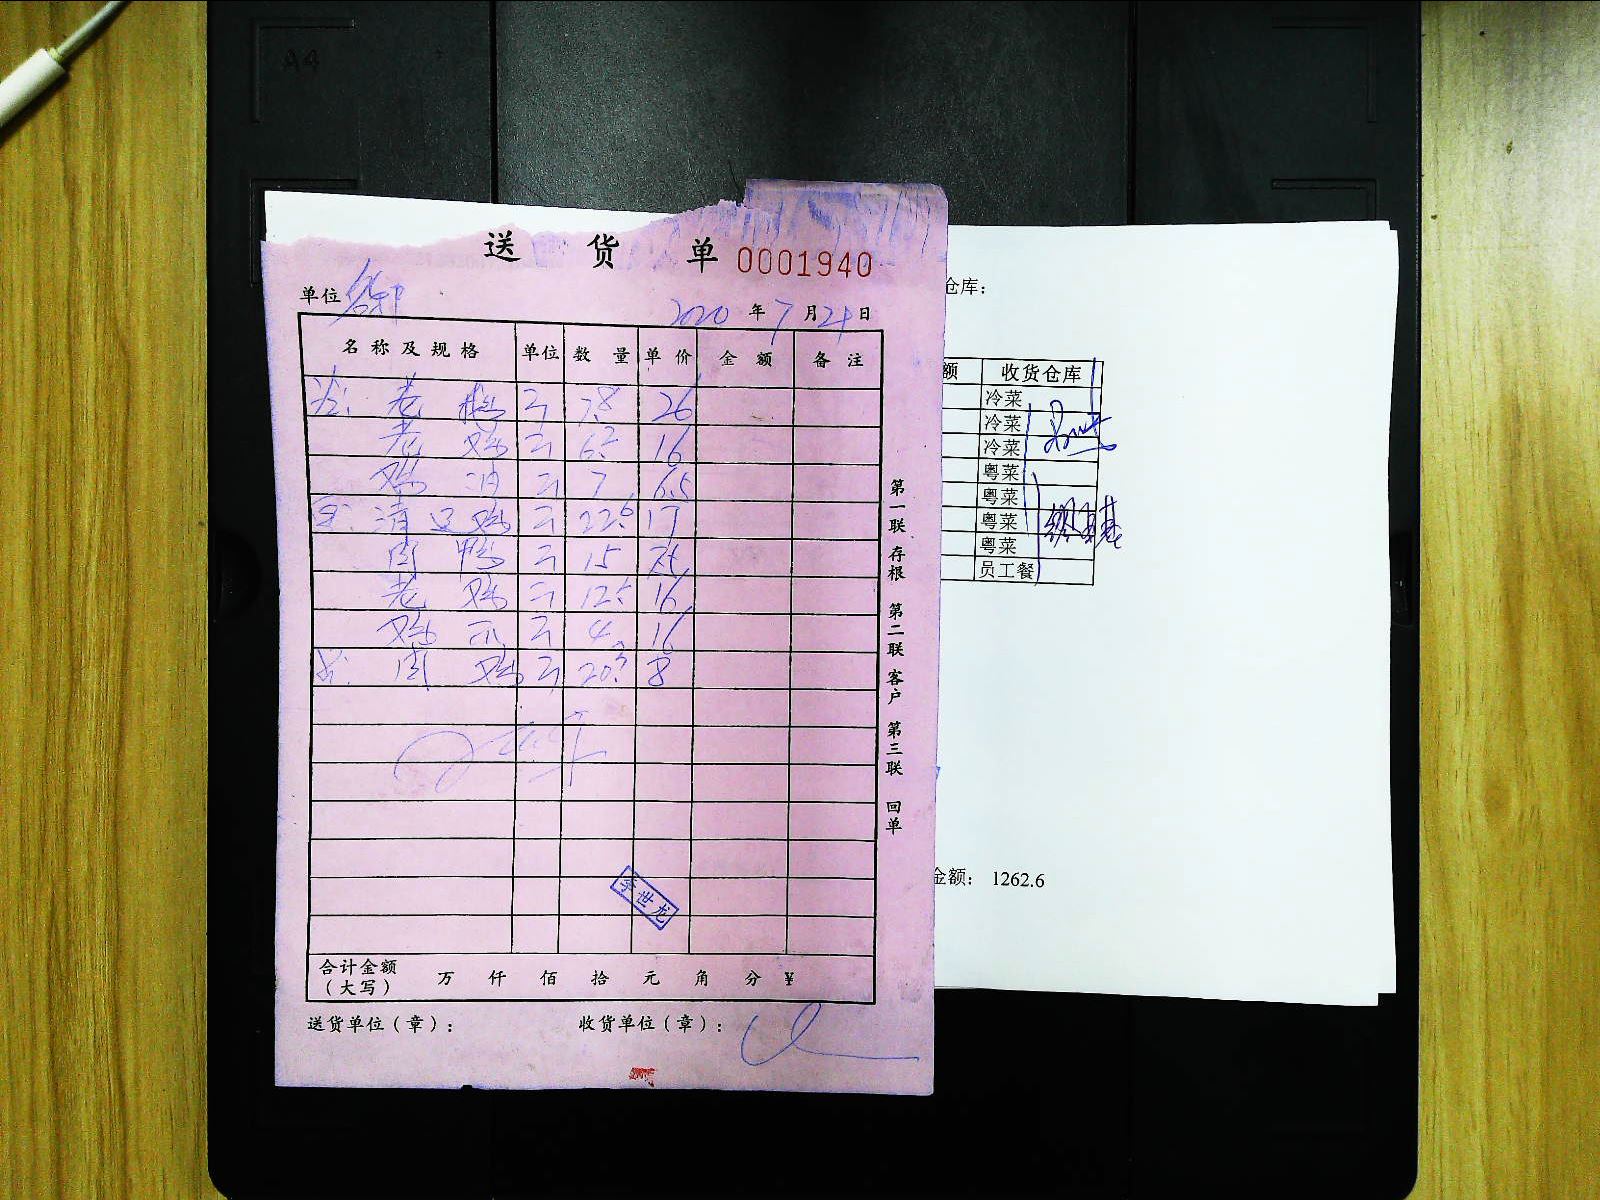 A4
送 货 单 0001940
单位
2020 年 7 月 21 日
名称及规格 单位 数量 单价 金额 备注
老 鹅 7.8 26
老 鸡 16
鸡 油 7 6.5
清远鸡 17
肉 鸭 15
老 鸡 16
鸡 爪 4 16
肉 鸡 8
李世龙
合计金额(大写) 万 仟 佰 拾 元 角 分 ¥
送货单位(章): 收货单位(章):
第一联 存根 第二联 客户 第三联 回单
仓库:
额 收货仓库
冷菜
冷菜
冷菜
粤菜
粤菜
粤菜
粤菜
员工餐
金额: 1262.6